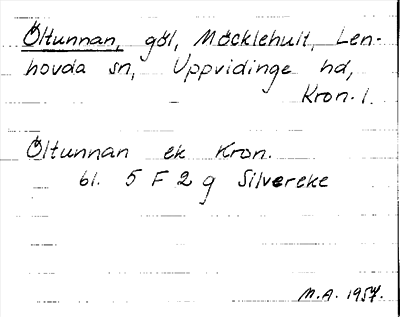 Öltunnan, göl, Möcklehult, Len-
hovda sn, Uppvidinge hd,
Kron. l.
Öltunnan ek Kron.
bl. 5 F 2 g Silvereke
M.A. 1957.